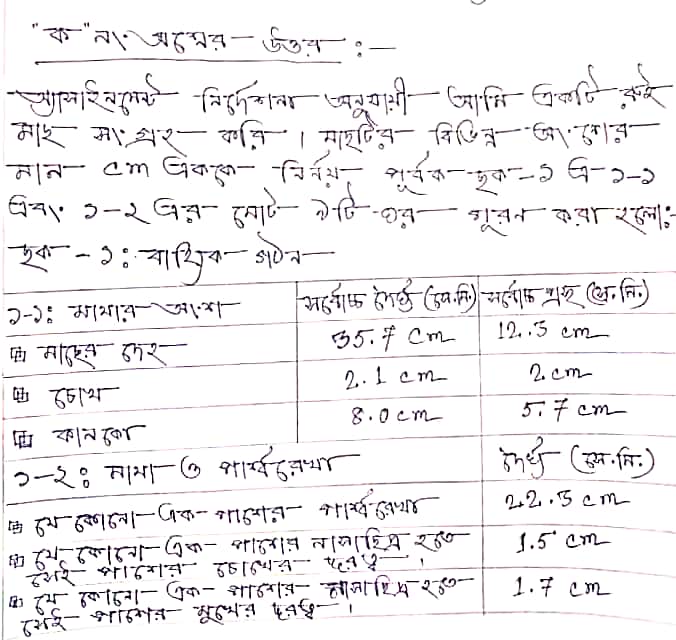 "ক" নং প্রশ্নের উত্তর :-
অ্যাসাইনমেন্ট নির্দেশনা অনুযায়ী আমি একটি রুই
মাছ সংগ্রহ করি । মাছটির বিভিন্ন অংশের
মান cm এককে নির্নয় পূর্বক ছক-১ এ ১-১
এবং ১-২ এর মোট ৯টি ঘর পূরন করা হলো:-
ছক - ১: বাহ্যিক গঠন
১-১: মাথার অংশ সর্বোচ্চ দৈর্ঘ্য (সে.মি.) সর্বোচ্চ প্রস্থ (সে.মি.)
মাছের দেহ 35.7 cm 12.3 cm
চোখ 2.1 cm 2 cm
কানকো 8.0 cm 5.7 cm
১-২: মাথা ও পার্শ্বরেখা দৈর্ঘ্য (সে.মি.)
যে কোনো এক পাশের পার্শ্বরেখা 22.3 cm
যে কোনো এক পাশের নাসাছিদ্র হতে 1.5 cm
সেই পাশের চোখের দূরত্ব ।
যে কোনো এক পাশের নাসাছিদ্র হতে 1.7 cm
সেই পাশের মুখের দূরত্ব ।